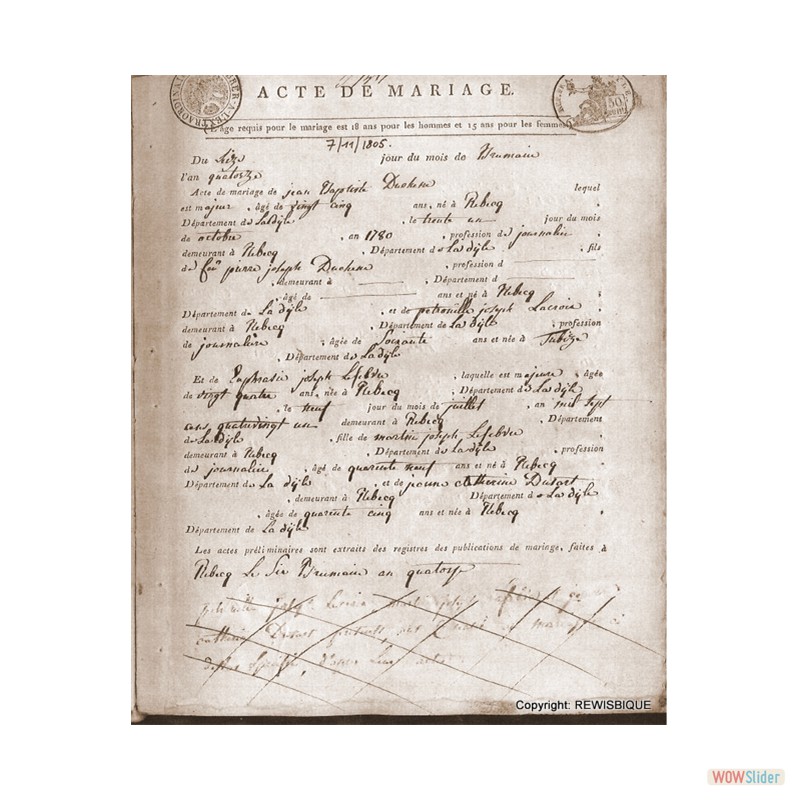 ACTE DE MARIAGE.
L'âge requis pour le mariage est 18 ans pour les hommes et 15 ans pour les femmes.
7/11/1805.
Du seize jour du mois de Brumaire
l'an quatorze
Acte de mariage de jean Baptiste Duchene lequel
est majeur, âgé de vingt cinq ans, né à Rebecq,
Département de La dÿle, le trente un jour du mois
de octobre, an 1780, profession de journalier,
demeurant à Rebecq, Département de La dÿle, fils
de feu pierre joseph Duchene, profession d
, demeurant à , Département d
, âgé de ans et né à Rebecq,
Département de La dÿle, et de petronille joseph Lacroix,
demeurant à Rebecq, Département de La dÿle, profession
de journalière, âgée de Soixante ans et née à Tubize
, Département de La dÿle
Et de Euphrasie joseph Lefebvre, laquelle est majeure, âgée
de vingt quatre ans, née à Rebecq, Département de La dÿle
, le neuf jour du mois de juillet, an mil sept
cens quatrevingt un demeurant à Rebecq, Département
de La dÿle, fille de martin joseph Lefebvre,
demeurant à Rebecq, Département de La dÿle, profession
de journalier, âgé de quarente neuf ans et né à Rebecq,
Département de La dÿle, et de jeanne Catherine Dutart
, demeurant à Rebecq Département de La dÿle
, âgée de quarente cinq ans et née à Rebecq,
Département de La dÿle
Les actes préliminaires sont extraits des registres des publications de mariage, faites à
Rebecq Le Six Brumaire an quatorze
joseph Lacroix martin joseph
catherine Dutart
Copyright: REWISBIQUE
WOWSlider